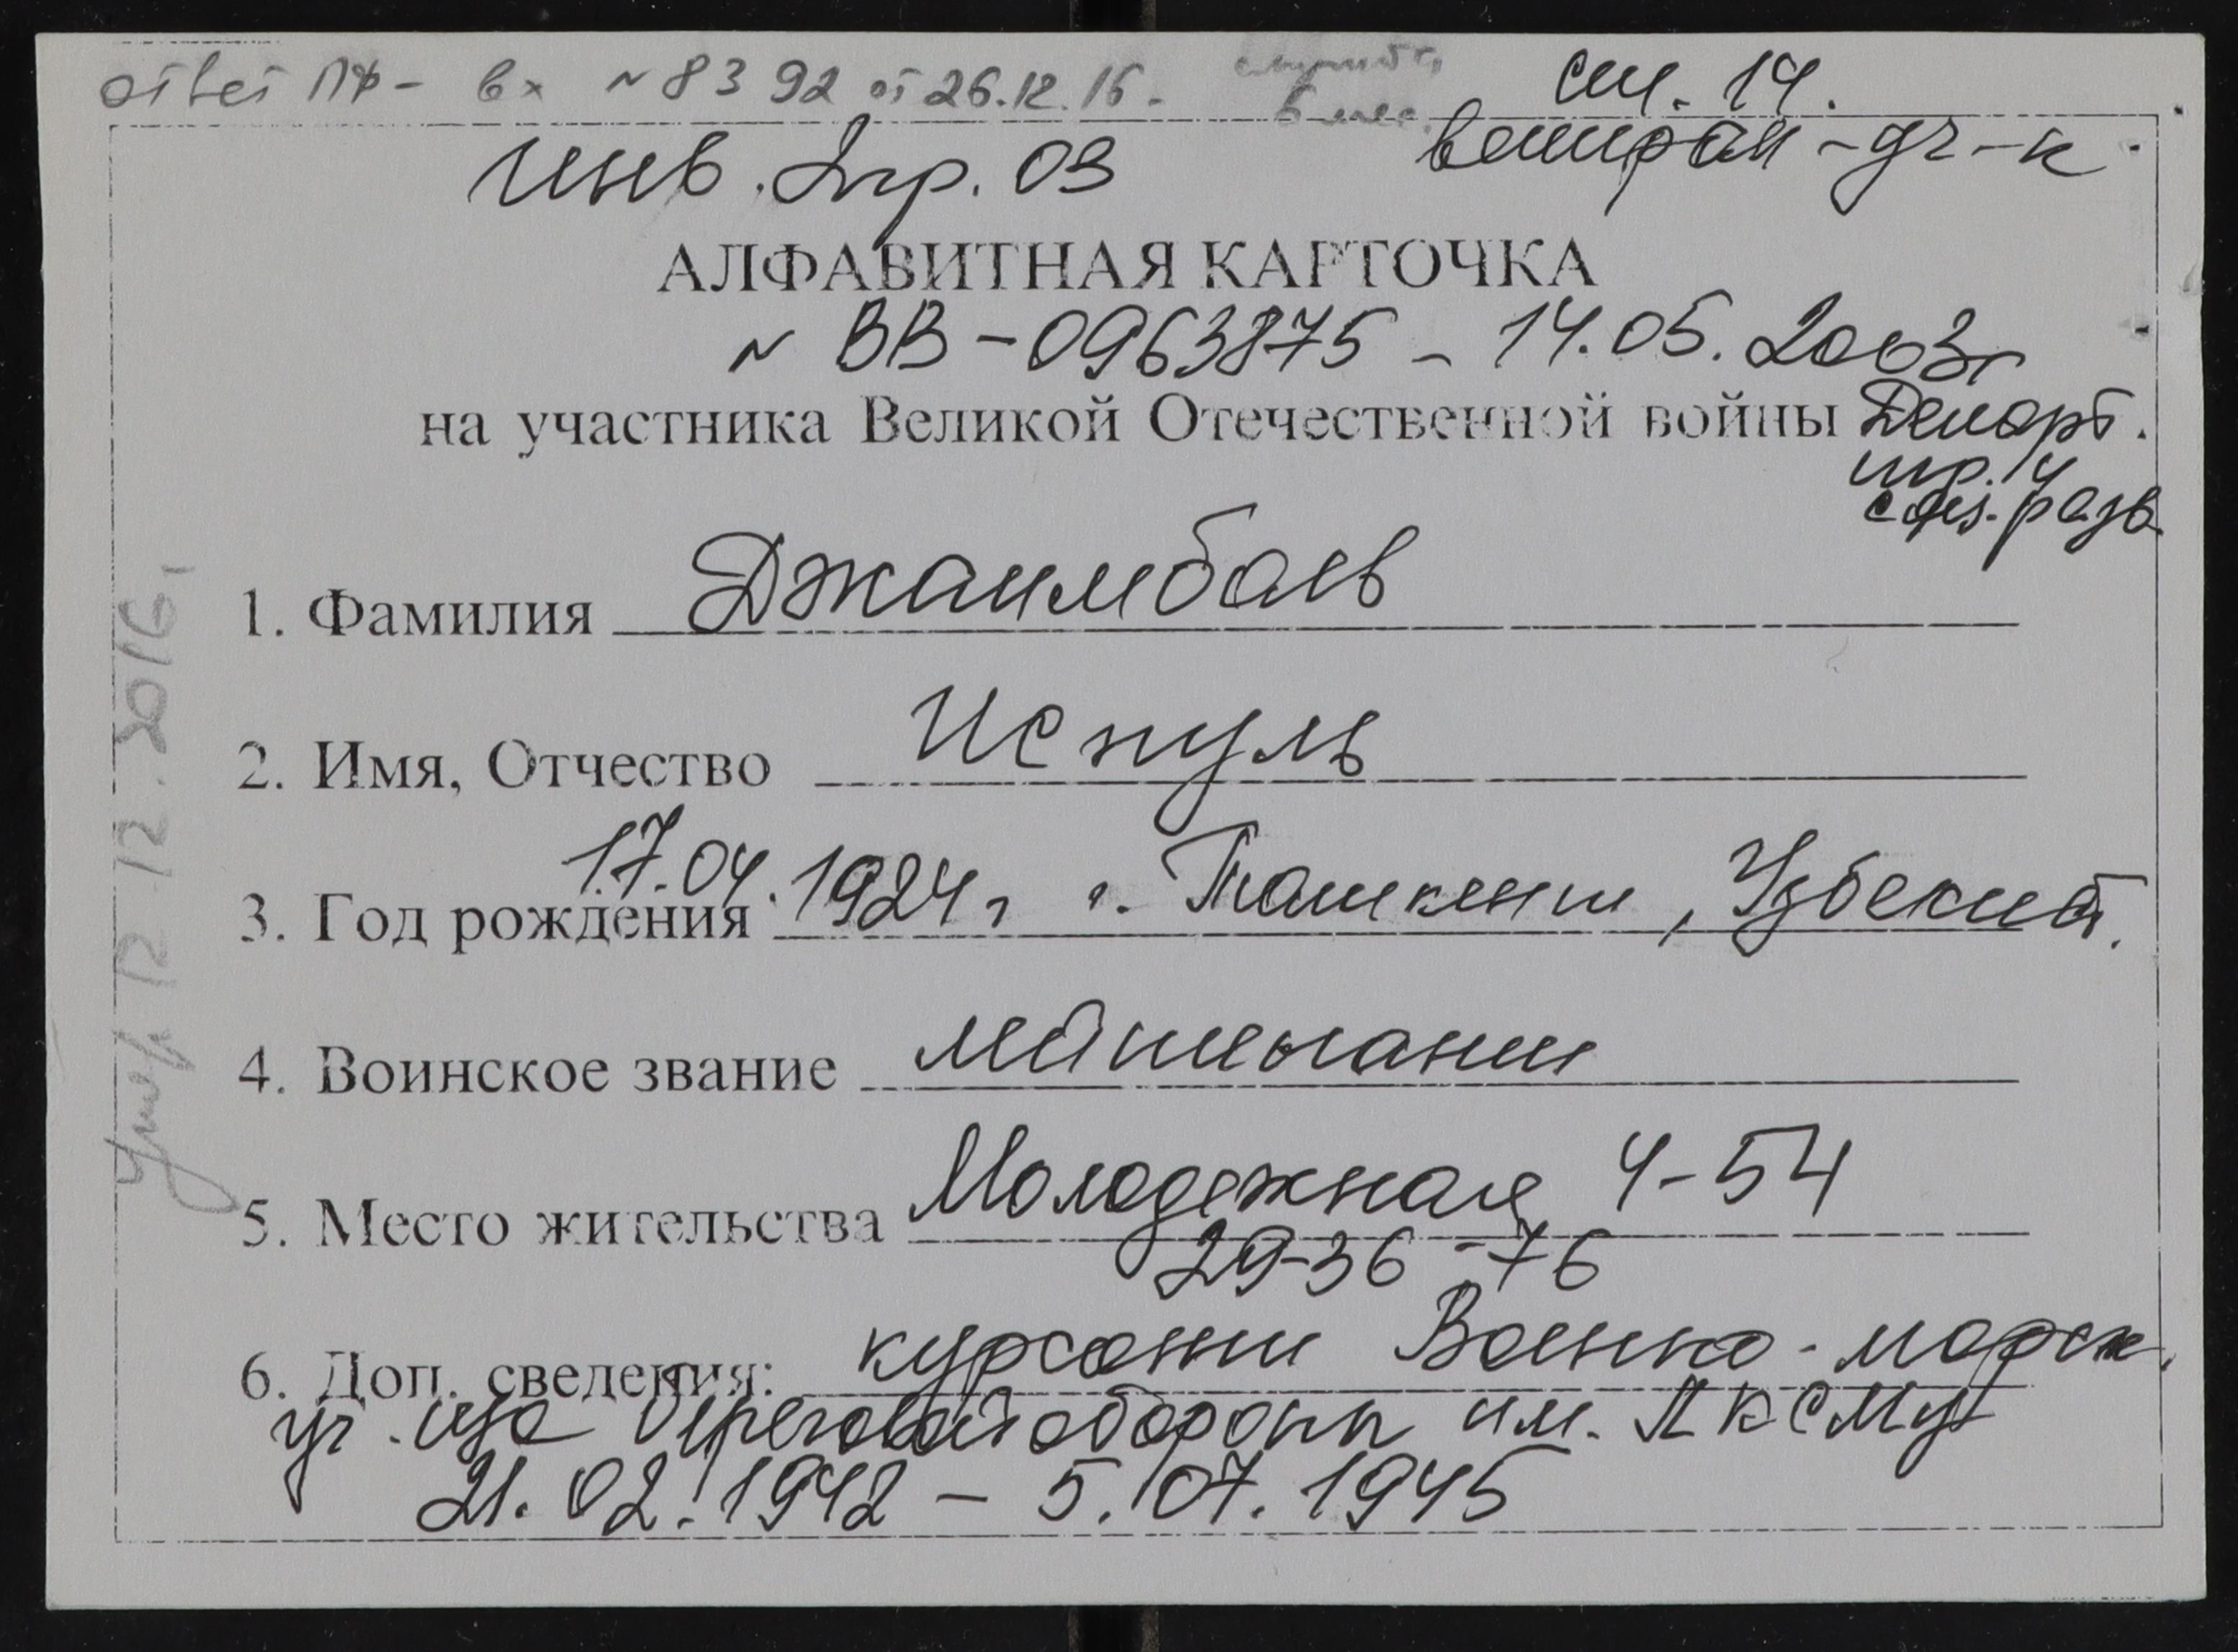 ответ ПФ - вх №8392 от 26.12.16.
ст. 14.
инв. 2 гр. ОЗ
ветеран - уч - к
АЛФАВИТНАЯ КАРТОЧКА
№ ВВ - 0963875 - 14.05.2003г
на участника Великой Отечественной войны
Департ.
соц. разв.
1. Фамилия Джаимбаев
2. Имя, Отчество Испуль
3. Год рождения 17.04.1924г г. Ташкент, Узбекист.
4. Воинское звание лейтенант
5. Место жительства Молодежная 4-54
29-36-76
6. Доп. сведения: курсант Военно-морск.
уч-ща береговой обороны им. ЛКСМУ
21.02.1942 - 5.07.1945
Умер 12.12.2016г